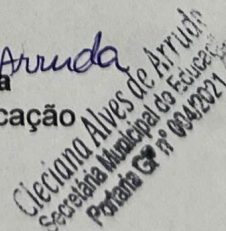 Arruda
a
cação
Cleciana Alves de Arruda
Secretária Municipal de Educação
Portaria GP nº 004/2021